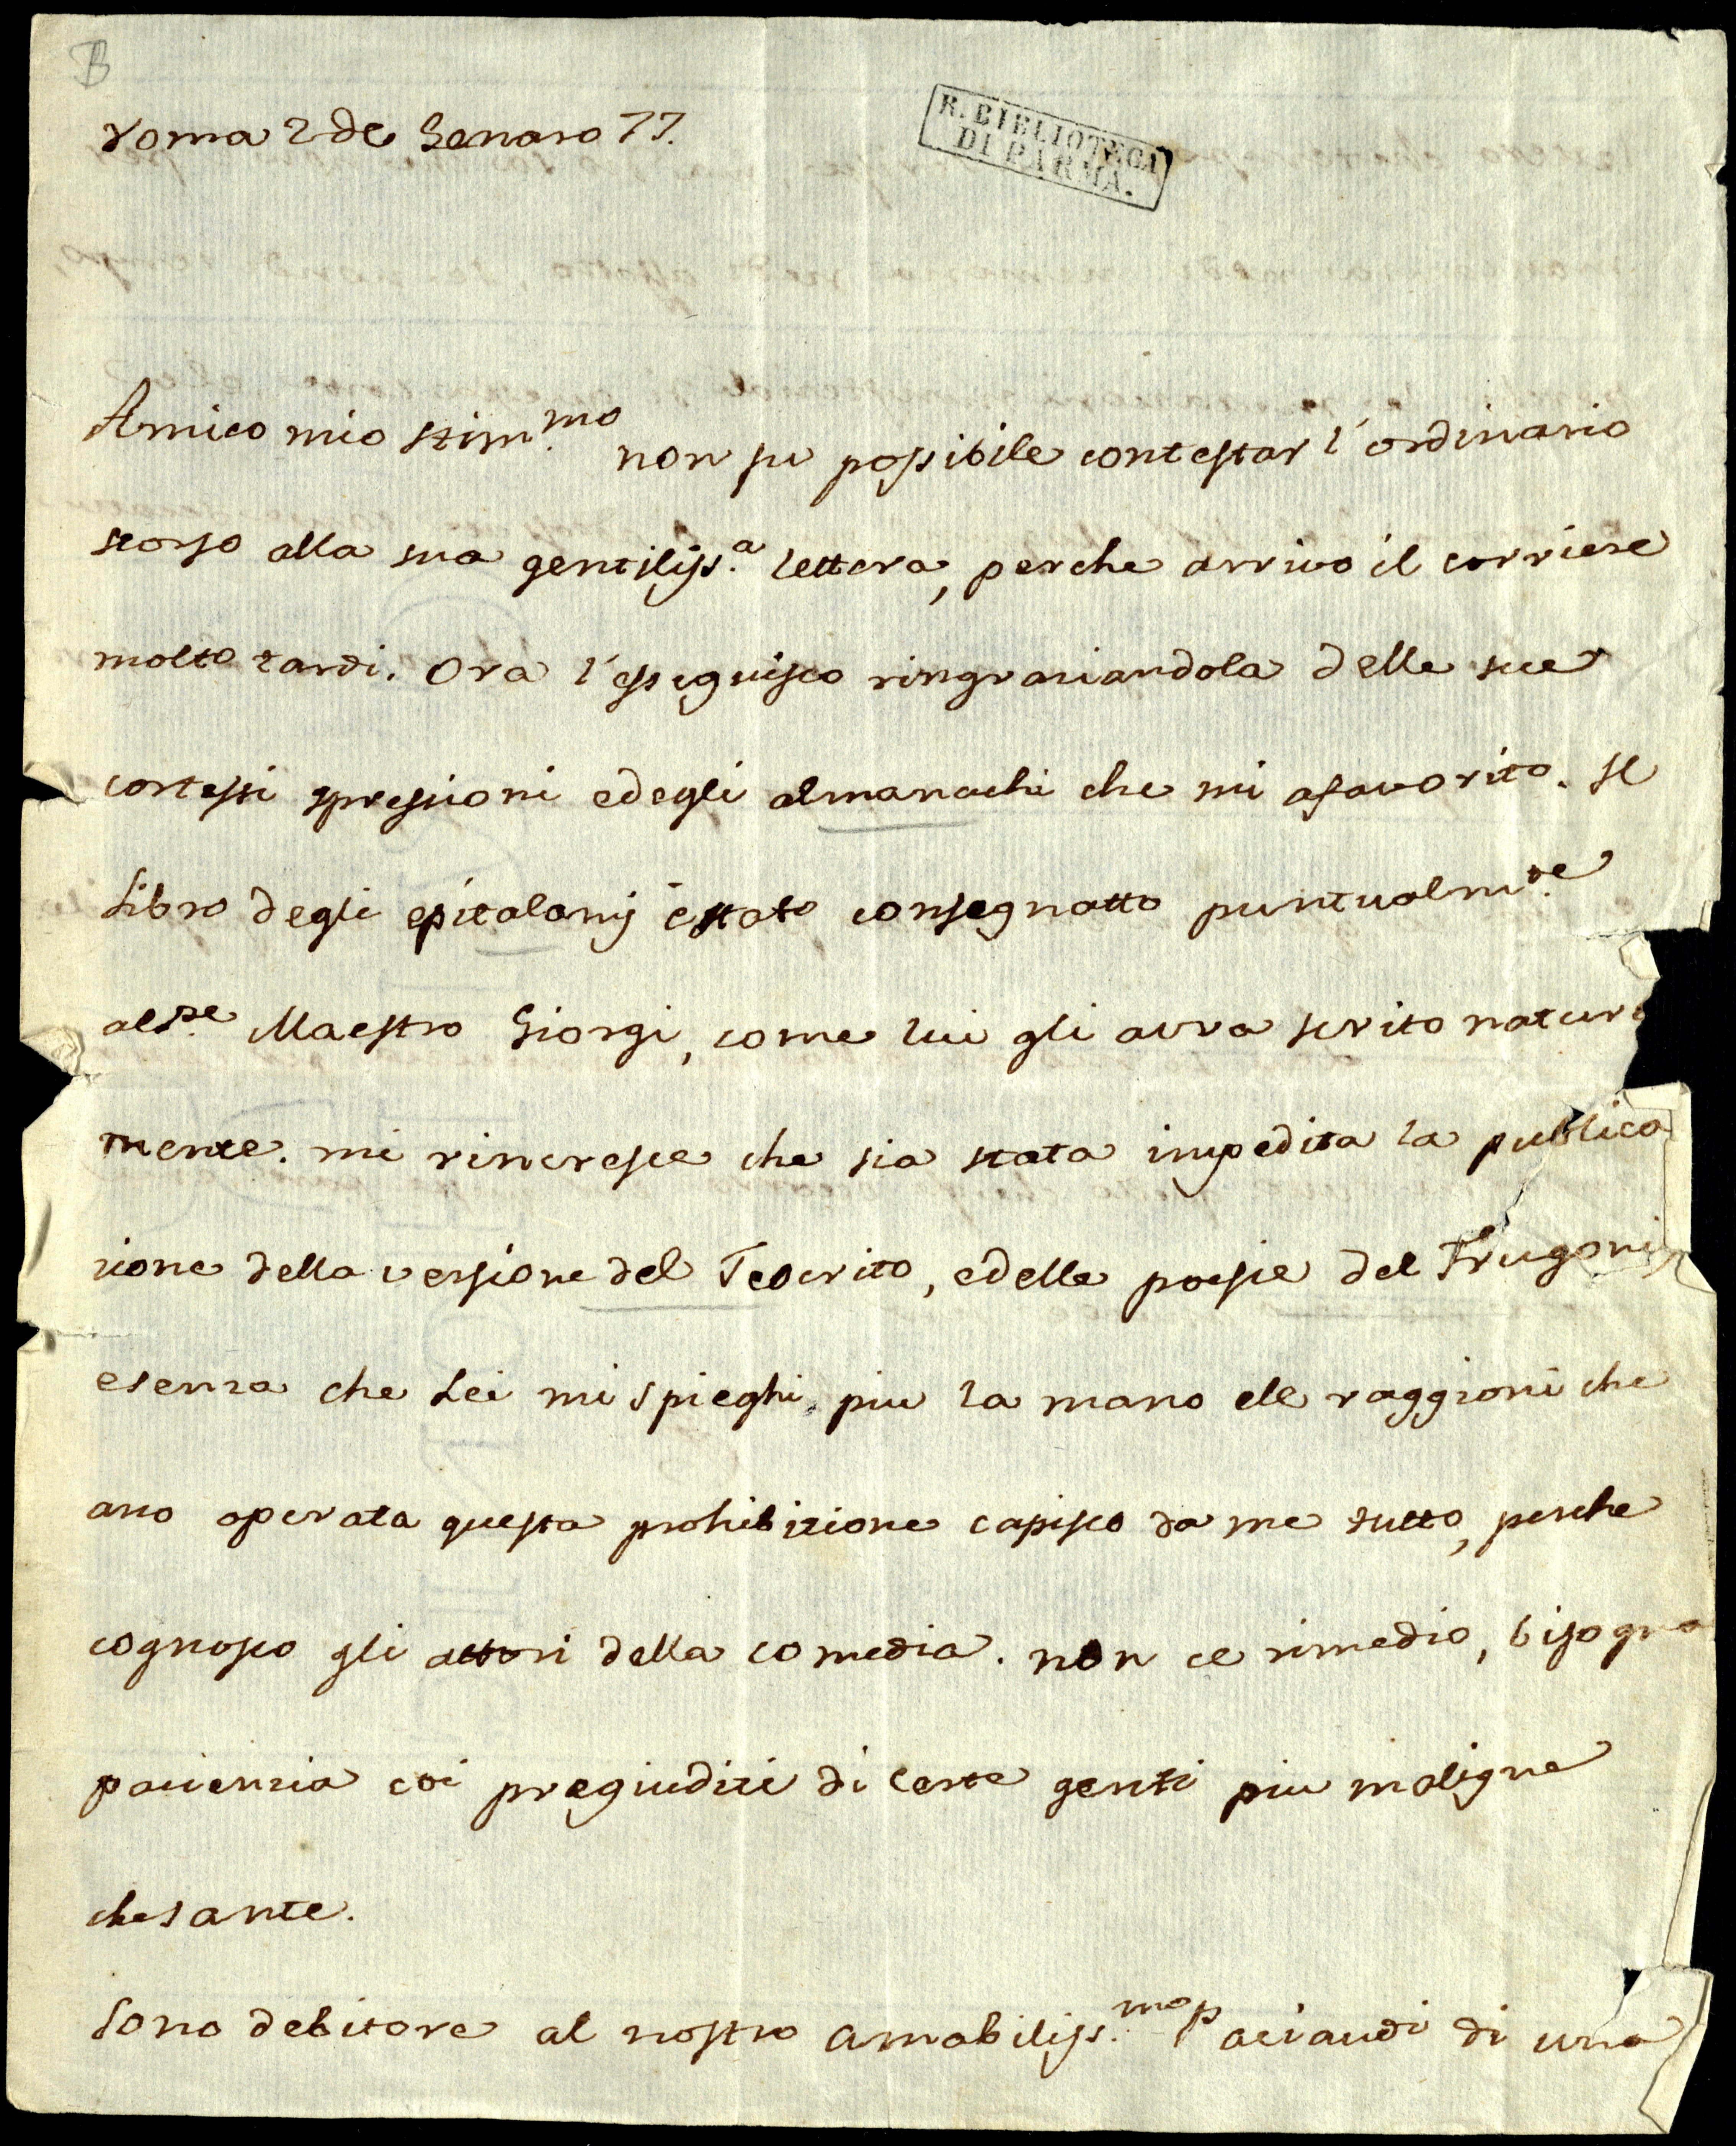 B
R. BIBLIOTECA
DI PARMA.
Roma 2 de Genaro 77.
Amico mio stim.mo non fu possibile contestar l'ordinario
scorso alla sua gentiliss.a lettera, perche arrivo il corriere
molto tardi. Ora l'esseguisco ringraziandola delle sue
cortessi spressioni edegli almanachi che mi afavorito. Il
Libro degli epitalamj é stato consegnatto puntualm.te
al Pe. Maestro Giorgi, come lui gli avra scrito natural
mente. mi rincresce che sia stata impedita la publica
zione della versione del Teocrito, edelle poesie del Frugoni
esenza che Lei mi spieghi piu la mano ele raggioni che
ano operata questa prohibizione capisco da me tutto, perche
cognosco gli attori della comedia. non ce rimedio, bisogna
pacienzia coi pregiudizi di certe genti piu maligne
che sante.
Sono debitore al nostro amabiliss.mo P. Paciaudi di una